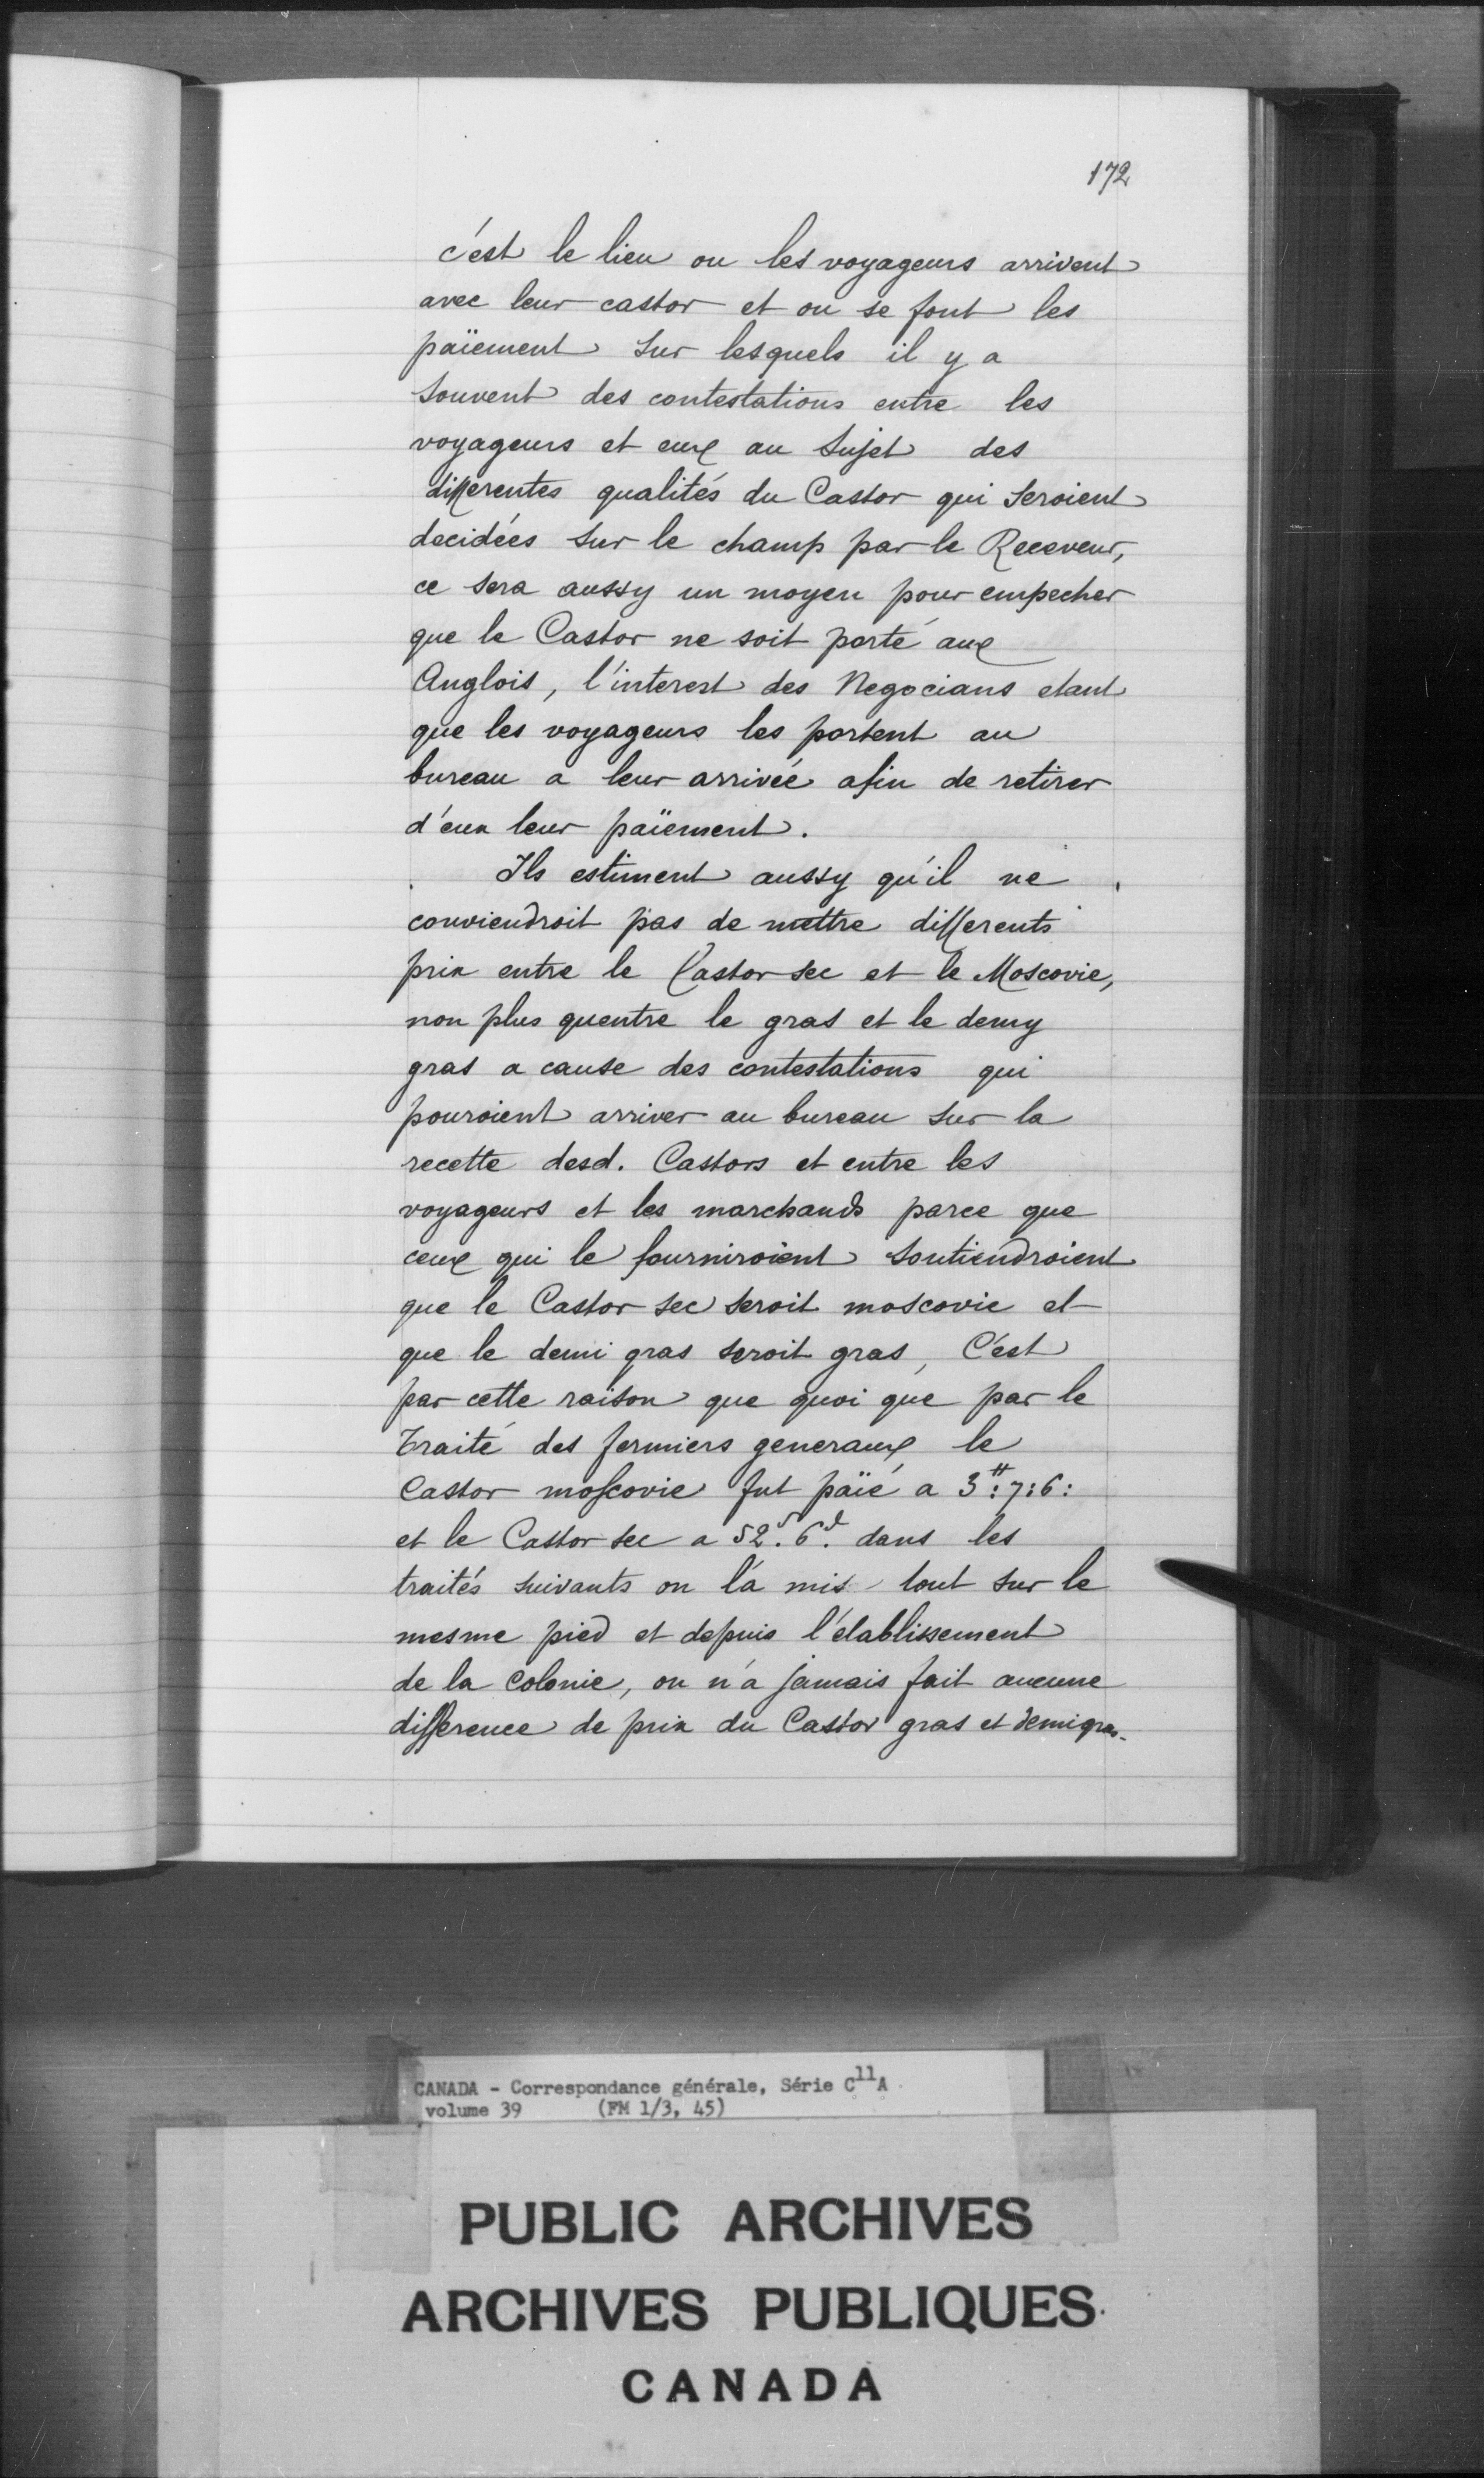 172
c'est le lieu ou les voyageurs arrivent
avec leur castor et ou se font les
païement sur lesquels il y a
souvent des contestations entre les
voyageurs et eux au sujet des
differentes qualités du Castor qui seroient
decidées sur le champ par le Receveur,
ce sera aussy un moyen pour empecher
que le Castor ne soit porté aux
Anglois, l'interest des Negocians etant
que les voyageurs les portent au
bureau a leur arrivée afin de retirer
d'eux leur païement.
Ils estiment aussy qu'il ne
conviendroit pas de mettre differents
prix entre le Castor sec et le Moscovie,
non plus quentre le gras et le demy
gras a cause des contestations qui
pouroient arriver au bureau sur la
recette desd. Castors et entre les
voyageurs et les marchands parce que
ceux qui le fourniroient soutiendroient
que le Castor sec seroit moscovie et
que le demi gras seroit gras, C'est
par cette raison que quoi que par le
Traité des fermiers generaux le
Castor moscovie fut païé a 3#:7:6:
et le Castor sec a 52s.6d. dans les
traités suivants on l'a mis tout sur le
mesme pied et depuis l'etablissement
de la Colonie, on n'a jamais fait aucune
difference de prix du Castor gras et demigras.
CANADA - Correspondance générale, Série C11A
volume 39 (FM 1/3, 45)
PUBLIC ARCHIVES
ARCHIVES PUBLIQUES
CANADA